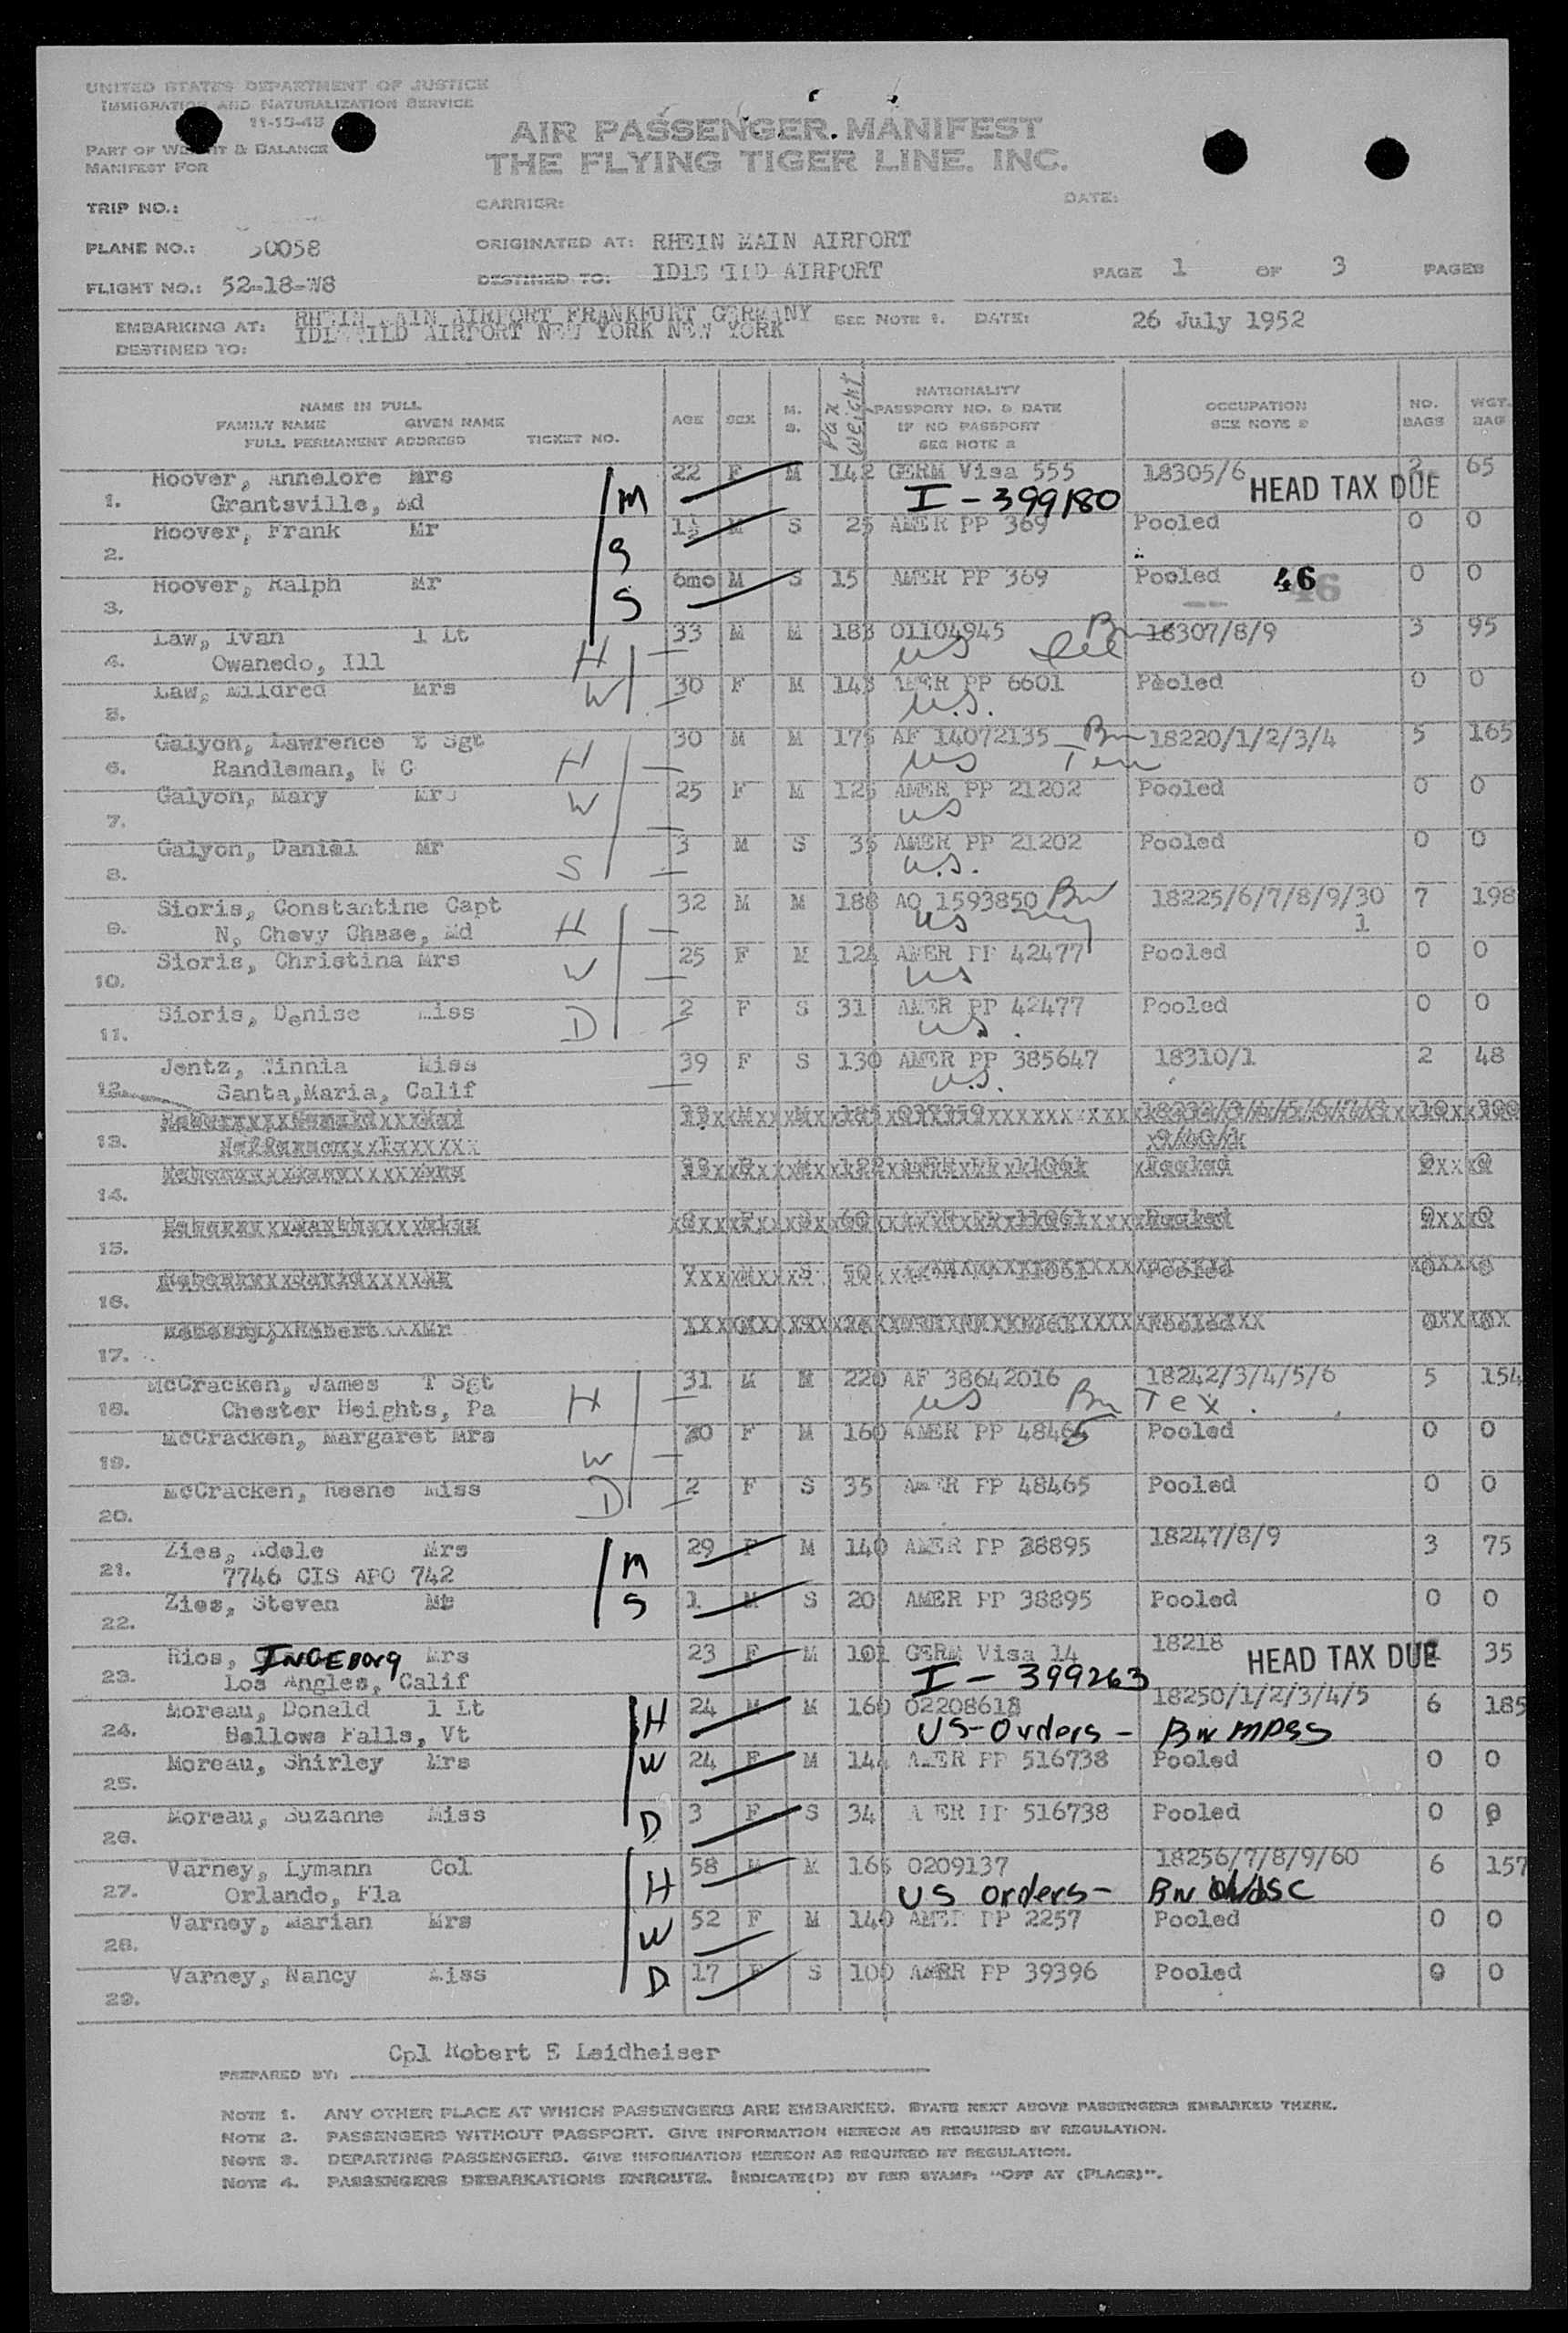 UNITED STATES DEPARTMENT OF JUSTICE
IMMIGRATION AND NATURALIZATION SERVICE
11-15-48
PART OF WEIGHT & BALANCE
MANIFEST FOR
AIR PASSENGER MANIFEST
THE FLYING TIGER LINE. INC.
TRIP NO.: CARRIER: DATE:
PLANE NO.: 50058 ORIGINATED AT: RHEIN MAIN AIRPORT
FLIGHT NO.: 52-18-W8 DESTINED TO: AIRPORT PAGE 1 OF 3 PAGES
EMBARKING AT: RHEIN MAIN AIRPORT FRANKFURT GERMANY SEE NOTE 1. DATE: 26 July 1952
DESTINED TO: IDLEWILD AIRPORT NEW YORK NEW YORK
NAME IN FULL
FAMILY NAME GIVEN NAME
FULL PERMANENT ADDRESS TICKET NO. AGE SEX M. S. Pax Weight NATIONALITY PASSPORT NO. & DATE IF NO PASSPORT SEE NOTE 2 OCCUPATION SEE NOTE 2 NO. BAGS WGT. BAG
1. Hoover, Annelore Mrs M 22 F M 142 GERM Visa 555 18305/6 2 65
Grantsville, Md I-399180 HEAD TAX DUE
2. Hoover, Frank Mr S 1½ M S 25 AMER PP 369 Pooled 0 0
3. Hoover, Ralph Mr S 6mo M S 15 AMER PP 369 Pooled 46 0 0
4. Law, Ivan 1 Lt H 33 M M 183 01104945 Bn 18307/8/9 3 95
Owanedo, Ill US Ill
5. Law, Mildred Mrs W 30 F M 143 AMER PP 6601 Pooled 0 0
U.S.
6. Galyon, Lawrence T Sgt H 30 M M 175 AF 14072135 Bn 18220/1/2/3/4 5 165
Randleman, N C US Ten
7. Galyon, Mary Mrs W 25 F M 125 AMER PP 21202 Pooled 0 0
US
8. Galyon, Daniel Mr S 3 M S 35 AMER PP 21202 Pooled 0 0
U.S.
9. Sioris, Constantine Capt H 32 M M 188 AO 1593850 Bn 18225/6/7/8/9/30 7 198
N, Chevy Chase, Md US NY 1
10. Sioris, Christina Mrs W 25 F M 124 AMER PP 42477 Pooled 0 0
US
11. Sioris, Denise Miss D 2 F S 31 AMER PP 42477 Pooled 0 0
US.
12. Jentz, Minnia Miss 39 F S 130 AMER PP 385647 18310/1 2 48
Santa,Maria, Calif U.S.
13.
14.
15.
16.
17.
18. McCracken, James T Sgt H 31 M M 220 AF 38642016 18242/3/4/5/6 5 154
Chester Heights, Pa US Bn Tex.
19. McCracken, Margaret Mrs W 20 F M 160 AMER PP 48465 Pooled 0 0
20. McCracken, Reene Miss D 2 F S 35 AMER PP 48465 Pooled 0 0
21. Zies, Adele Mrs M 29 F M 140 AMER PP 38895 18247/8/9 3 75
7746 CIS APO 742
22. Zies, Steven S 1 M S 20 AMER PP 38895 Pooled 0 0
23. Rios, INGEBORG Mrs 23 F M 101 GERM Visa 14 18218 35
Los Angles, Calif I-399263 HEAD TAX DUE
24. Moreau, Donald 1 Lt H 24 M M 160 02208618 18250/1/2/3/4/5 6 185
Bellows Falls, Vt US-Orders- Bn MPSS
25. Moreau, Shirley Mrs W 24 F M 144 AMER PP 516738 Pooled 0 0
26. Moreau, Suzanne Miss D 3 F S 34 AMER PP 516738 Pooled 0 0
27. Varney, Lymann Col H 58 M M 165 0209137 18256/7/8/9/60 6 157
Orlando, Fla US orders- BN
28. Varney, Marian Mrs W 52 F M 140 AMER PP 2257 Pooled 0 0
29. Varney, Nancy Miss D 17 F S 100 AMER PP 39396 Pooled 0 0
Cpl Robert E Leidheiser
PREPARED BY:
NOTE 1. ANY OTHER PLACE AT WHICH PASSENGERS ARE EMBARKED. STATE NEXT ABOVE PASSENGERS EMBARKED THERE.
NOTE 2. PASSENGERS WITHOUT PASSPORT. GIVE INFORMATION HEREON AS REQUIRED BY REGULATION.
NOTE 3. DEPARTING PASSENGERS. GIVE INFORMATION HEREON AS REQUIRED BY REGULATION.
NOTE 4. PASSENGERS DEBARKATIONS ENROUTE. INDICATE(D) BY RED STAMP: "OFF AT (PLACE)".